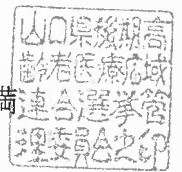 山口県後期高
齢者医療広域
連合選挙管
理委員会之印
満